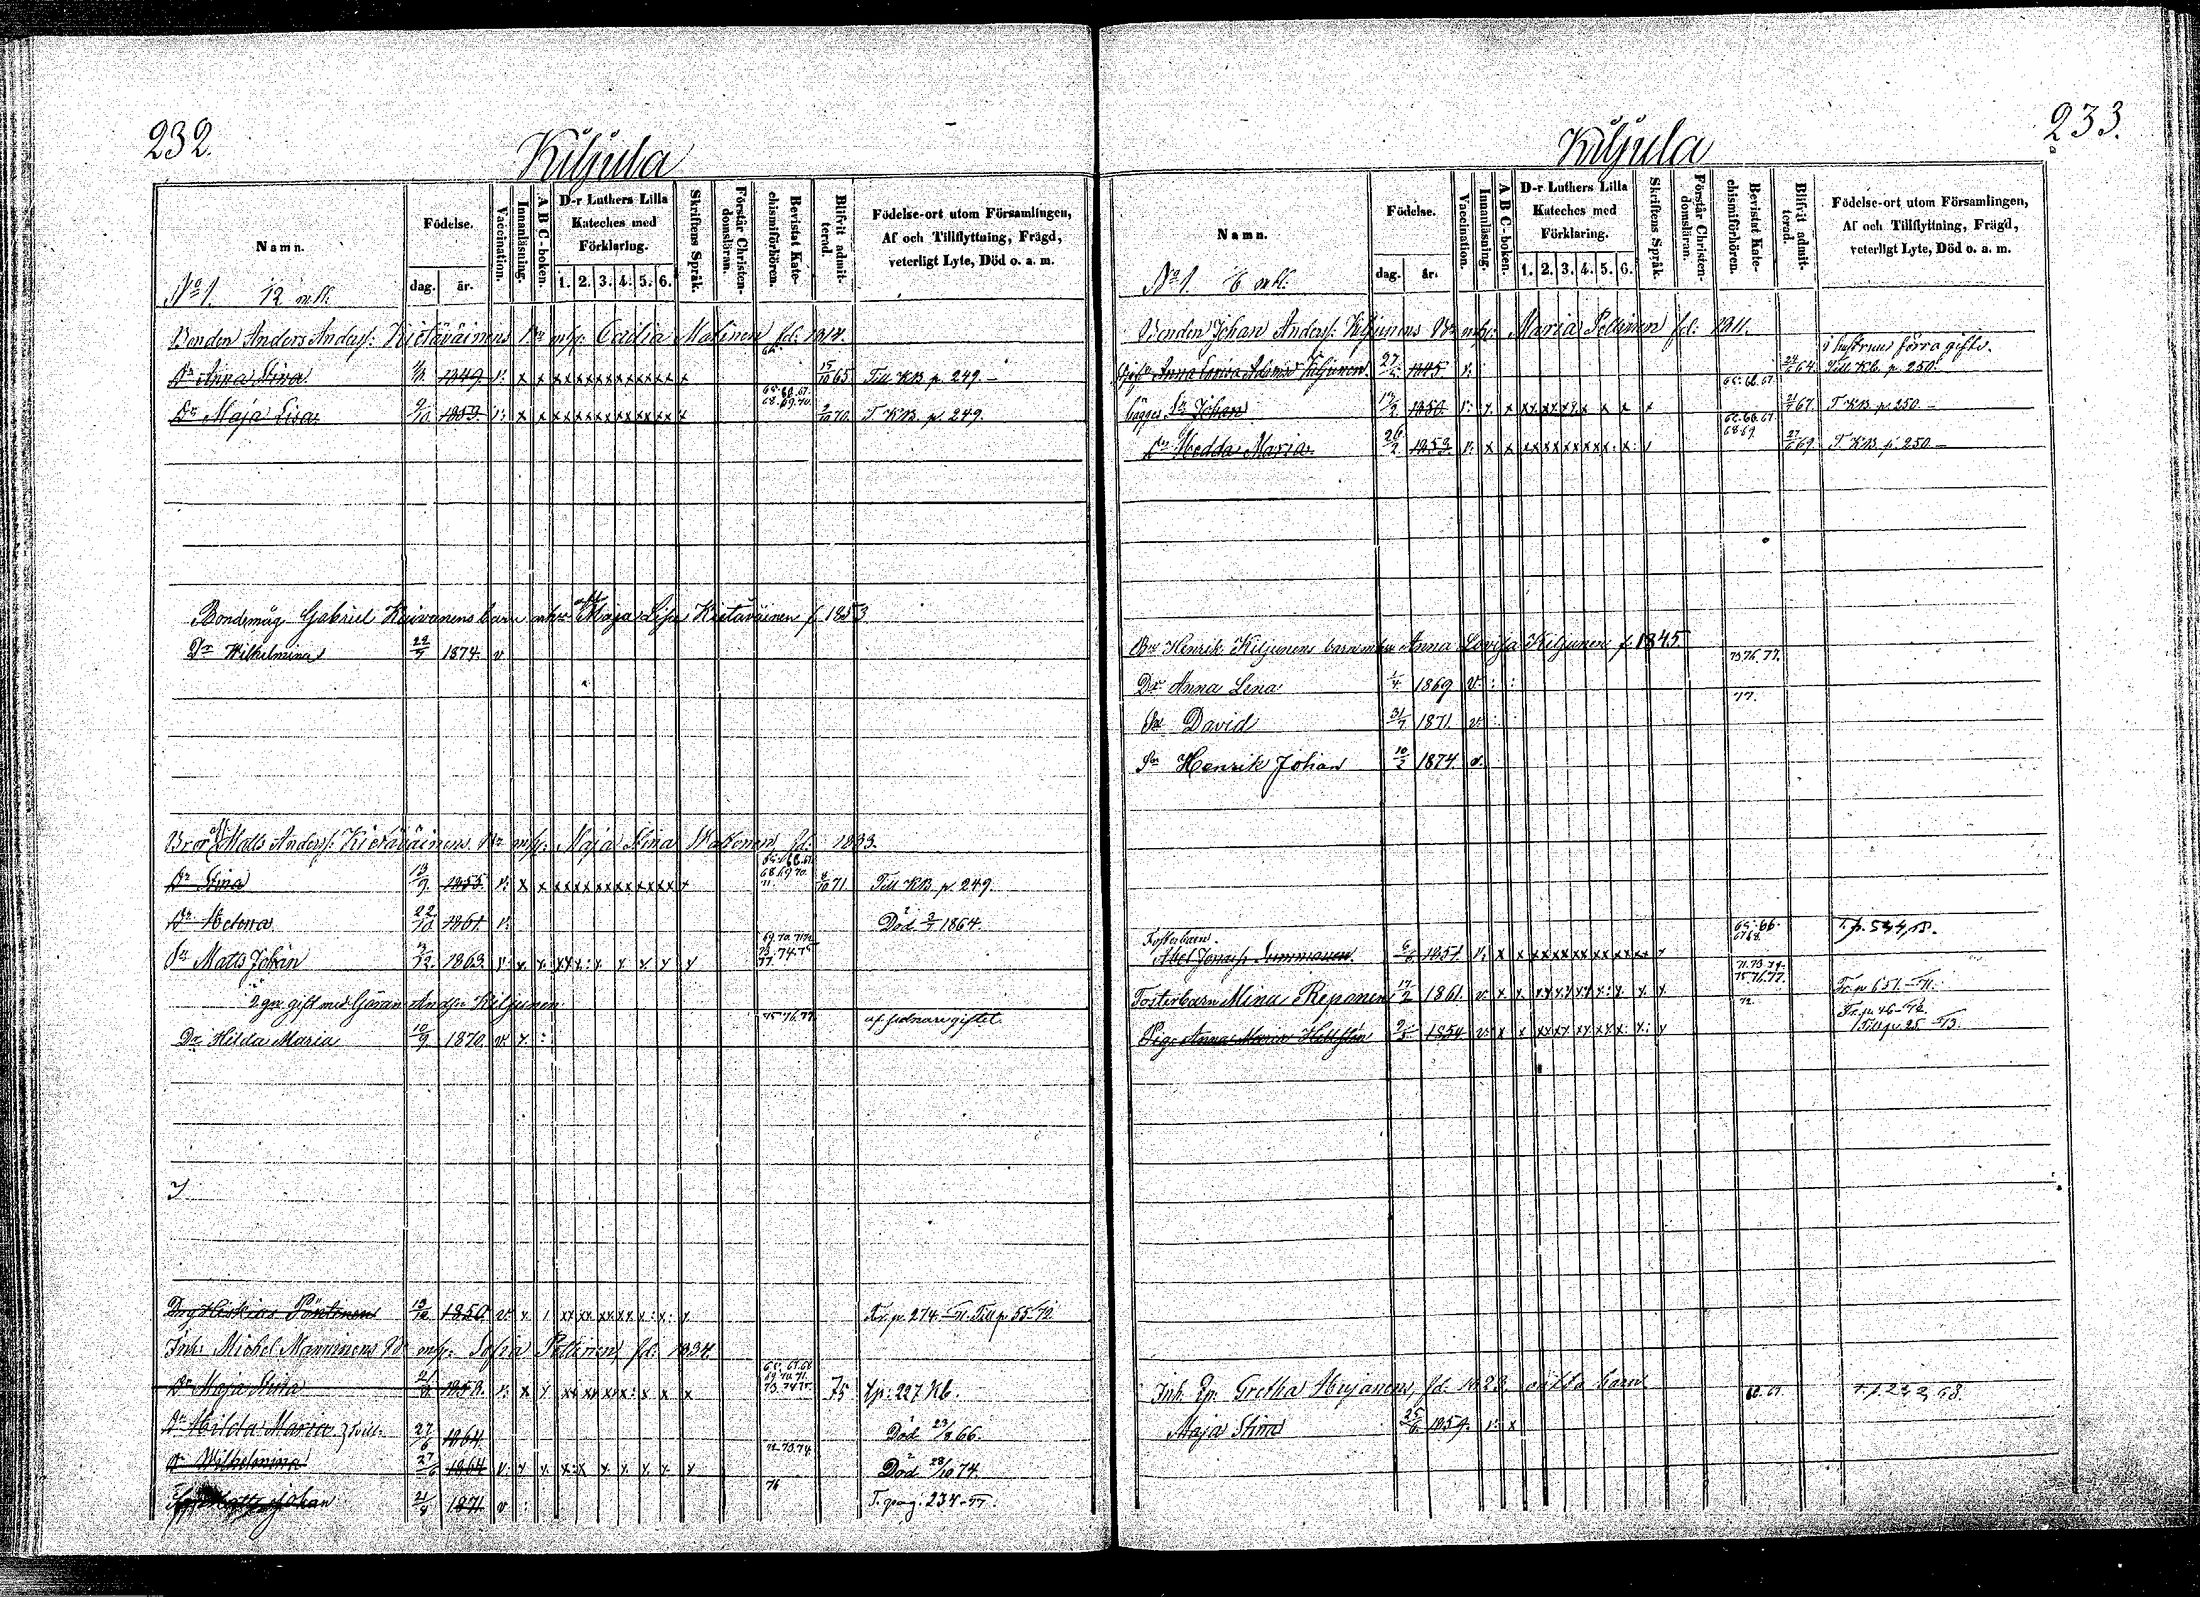 232.
Kiljula
Namn.
Födelse.
dag.
år.
Vaccination.
Innanläsning.
A B C-boken.
D-r Luthers Lilla Kateches med Förklaring.
1. 2. 3. 4. 5. 6.
Skriftens Språk.
Förstår Christendomsläran.
Bevistat Katechismiförhören.
Blifvit admitterad.
Födelse-ort utom Församlingen, Af och Tillflyttning, Frägd, veterligt Lyte, Död o. a. m.
No 1. 12 mtl.
Bonden Anders Anders: Kietäväinens Bn m/h: Cecilia Matinen fd: 1814.
Dr Anna Stina 1849 v: x x x x x x x x x x x x 15/10 65 Till KB p. 249.
Dr Maja Lisa 9/10 1853 v: x x x x x x x x x x x x 65. 66. 67. 68. 69. 70. 70. T. KB. p. 249.
Bondemåg Gabriel barn Maja Lisa Kietäväinen f. 1853.
Dr Wilhelmina 22/7 1874. v
Bror Matts Anders: Kietäväinens Bn m/h: Maja Stina fd: 1833.
Dr Stina 13/9 1855. v: x x x x x x x x x x x x 68 69 70. 71. 71 Till KB p. 249.
Dr Helena 22/10 1861. v: Död 3/7 1864.
Sn Mats Johan 1863. v: x. x. 69. 70. 73. 74. 75 77.
2 gn gift med Göran Anders: Kiljunen
Dr Hilda Maria 10/9 1870. v x : 75 76. 77 af sednare giftet
Drg Heskias Pöntinen 13/12 1850 v x Fr. p. 274 - 71. Till p. 55 - 72.
Inh: Michel Manninens Bn m/h: Sofia Peltinen, fd: 1834
Dr Maja Stina 1858. v: x x 69 70. 71. 73. 74 75. 75 T. p: 227 Kb.
Dr Hilda Maria 27/6 1864. Död 23/8 66.
Dr Wilhelmina 27/6 1864 v: x x 72. 73. 74 Död 28/10 74.
Matts Johan 21/8 1871. v : 76 T. pag: 234 - 77.
233.
Kiljula
Namn.
Födelse.
dag.
år.
Vaccination.
Innanläsning.
A B C-boken.
D-r Luthers Lilla Kateches med Förklaring.
1. 2. 3. 4. 5. 6.
Skriftens Språk.
Förstår Christendomsläran.
Bevistat Katechismiförhören.
Blifvit admitterad.
Födelse-ort utom Församlingen, Af och Tillflyttning, Frägd, veterligt Lyte, Död o. a. m.
No 1. 6 mtl:
Bonden Johan Anders: Kiljunens Bn m/h: Maria Peltinen fd: 1811.
Anna Lovisa Adamsd Kiljunen. 27 1845 v: 24 64. i hustruns förra gifte. Till Kb. p. 250.
bägges Sn Johan 1850. v: x. x x x x x x x x x 65. 66. 67. 67. T. KB p. 250.
Dr Hedda Maria. 26/2 1853. v: x x x x x x x x x x x x 65. 66. 67. 68 69. 27 69. T. KB p. 250
Bn Henrik Kiljunens barn m/h Anna Lovisa Kiljunen f. 1845
Dr Anna Lena 1/4 1869 v. : : 75 76. 77.
Sn David 31/7 1871. v : 77.
Sn Henrik Johan 10/2 1874. v.
Fosterbarn.
Abel 1851. v: x x x x x x x x x x x x 65. 66. 67 68. T. p. 534, 68.
Fosterbarn Mina Reponen 17/2 1861. v x x. 71. 73. 74. 75 76. 77. Fr. p 651 - 71.
Pig. Anna Maria Hellstén 1854. v x x 72. Fr. p. 46 - 72. Till p. 25 - 73.
Inh. Gretha fd: 1823. oäkta barn T. p. 68.
Maja Stina 25/6 1859. v: x